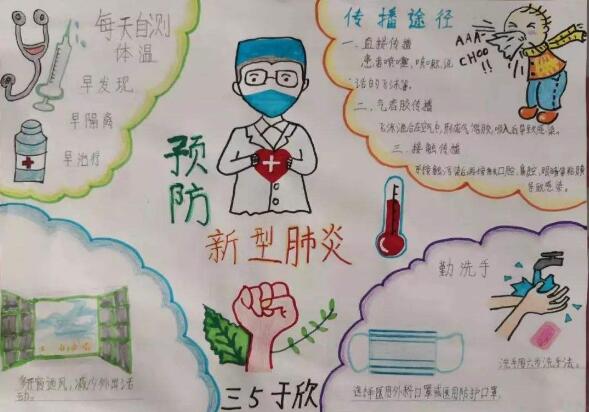 每天自测
体温
早发现
早隔离
早治疗
预防
新型肺炎
传播途径
一、直接传播
患者喷嚏,咳嗽,说
话的飞沫等。
AAA-
CHOO
!!
二、气溶胶传播
飞沫混合在空气中,形成气溶胶,吸入后导致感染。
三、接触传播
手接触污染后再接触口腔,鼻腔,眼睛等粘膜
导致感染。
勤洗手
洗手用六步洗手法。
多开窗通风,减少外出活
动。
选择医用外科口罩或医用防护口罩。
三5于欣